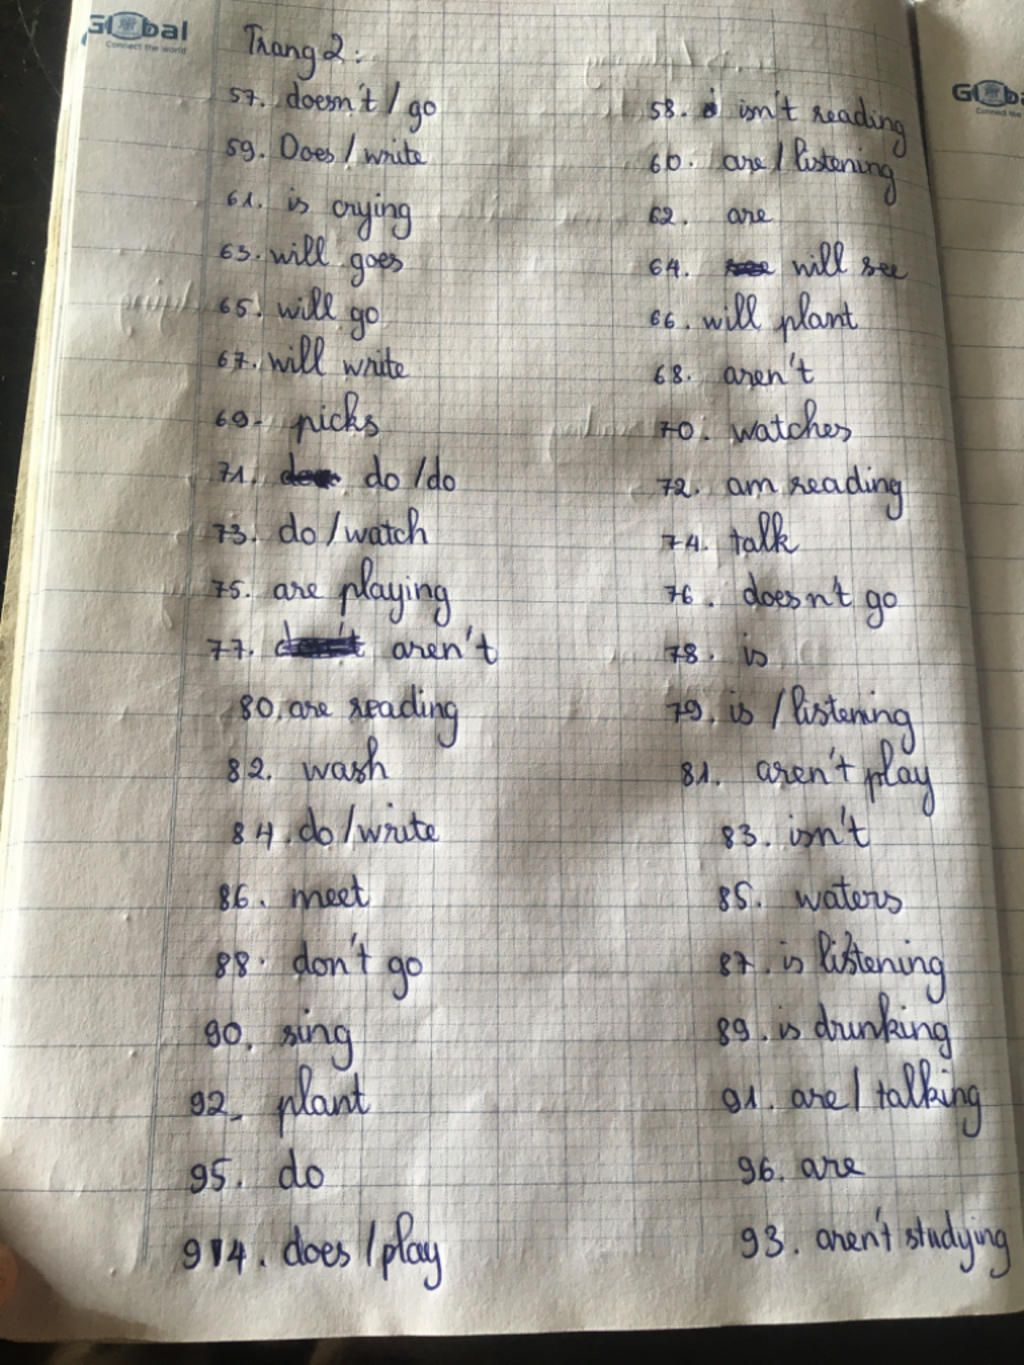 Global
Connect the world
Trang 2:
57. doesn't / go
58. isn't reading
59. Does / write
60. are / listening
61. is crying
62. are
63. will goes
64. will see
65. will go
66. will plant
67. will write
68. aren't
69. picks
70. watches
71. do / do
72. am reading
73. do / watch
74. talk
75. are playing
76. doesn't go
77. aren't
78. is
80. are reading
79. is / listening
82. wash
81. aren't play
84. do / write
83. isn't
86. meet
85. waters
88. don't go
87. is listening
90. sing
89. is drunking
92. plant
91. are / talking
95. do
96. are
94. does / play
93. aren't studying